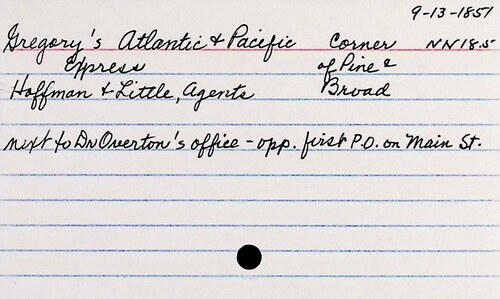 9-13-1851
Gregory's Atlantic & Pacific Corner NN18.5
Express of Pine &
Hoffman & Little, Agents Broad
next to Dr Overton's office - opp. first P.O. on Main St.